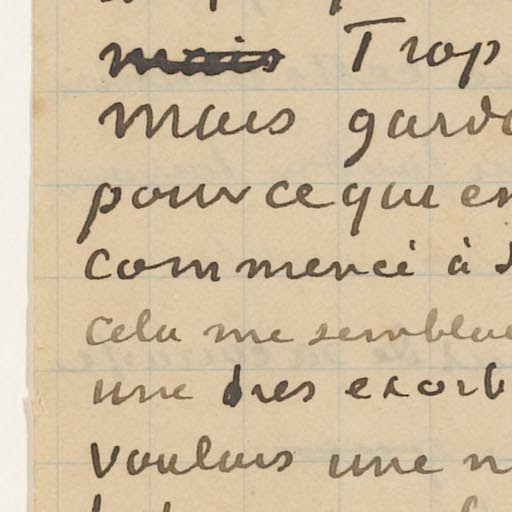 ~~mais~~ Trop
Mais gard
pour ce qui en
commencé à
Cela me semblai
une tres exorb
Voulais une n